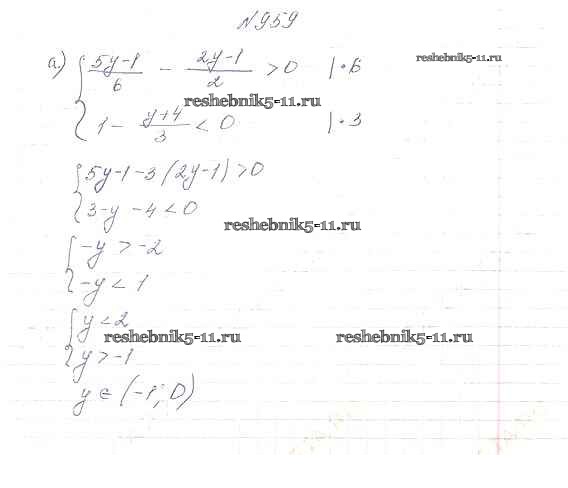 №959
а) { (5y-1)/6 - (2y-1)/2 > 0 |·6
reshebnik5-11.ru
reshebnik5-11.ru
1 - (y+4)/3 < 0 |·3
{ 5y-1-3(2y-1)>0
3-y-4<0
reshebnik5-11.ru
{ -y > -2
-y < 1
{ y < 2
reshebnik5-11.ru reshebnik5-11.ru
y > -1
y ∈ (-1; 0)